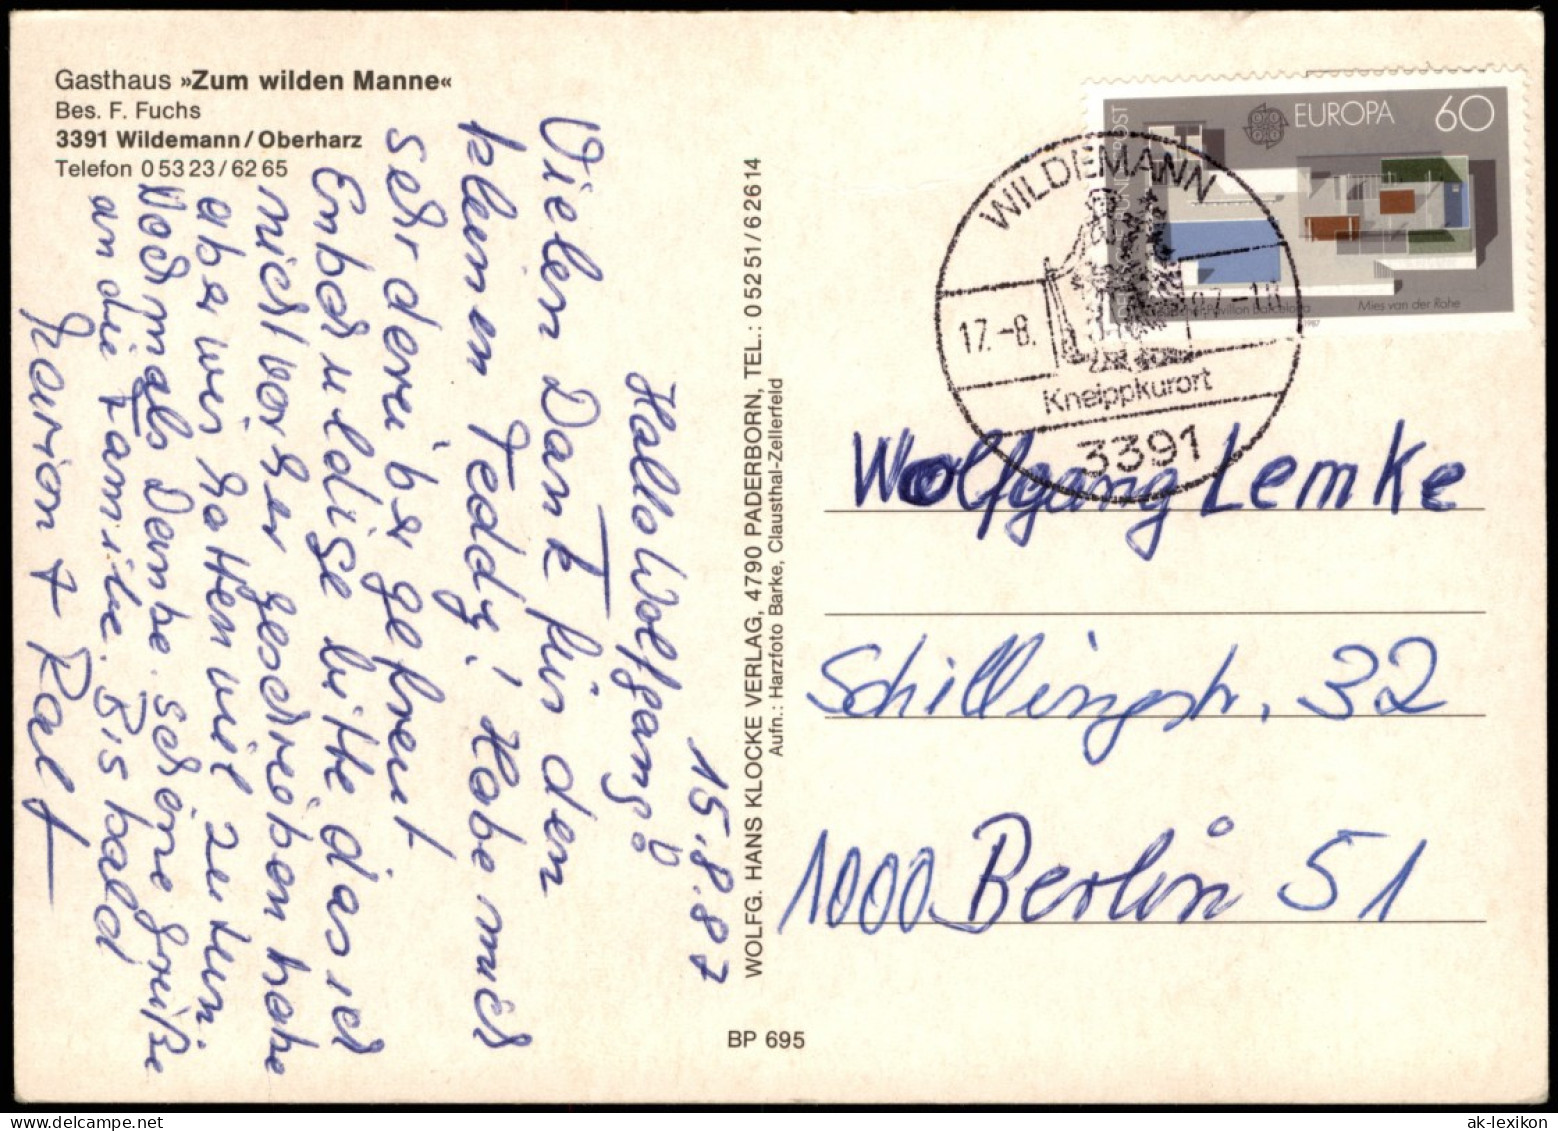 Gasthaus »Zum wilden Manne«
Bes. F. Fuchs
3391 Wildemann/Oberharz
Telefon 0 53 23 / 62 65
15.8.87
Hallo Wolfgang!
Vielen Dank für den
kleinen Teddy! Habe mich
sehr derüber gefreut
Endschuldige bitte das ich
nicht vorher geschrieben habe
aber wir hatten viel zu tun.
Nochmals Danke. schöne Grüße
an die Familie. Bis bald
Marion + Ralf
WOLFG. HANS KLOCKE VERLAG, 4790 PADERBORN, TEL.: 0 52 51 / 6 26 14
Aufn.: Harzfoto Barke, Clausthal-Zellerfeld
BP 695
EUROPA 60
Pavillon Barcelona
Mies van der Rohe
1987
WILDEMANN
17.-8. 87-18
Kneippkurort
3391
Wolfgang Lemke
Schillingstr. 32
1000 Berlin 51
ak-lexikon